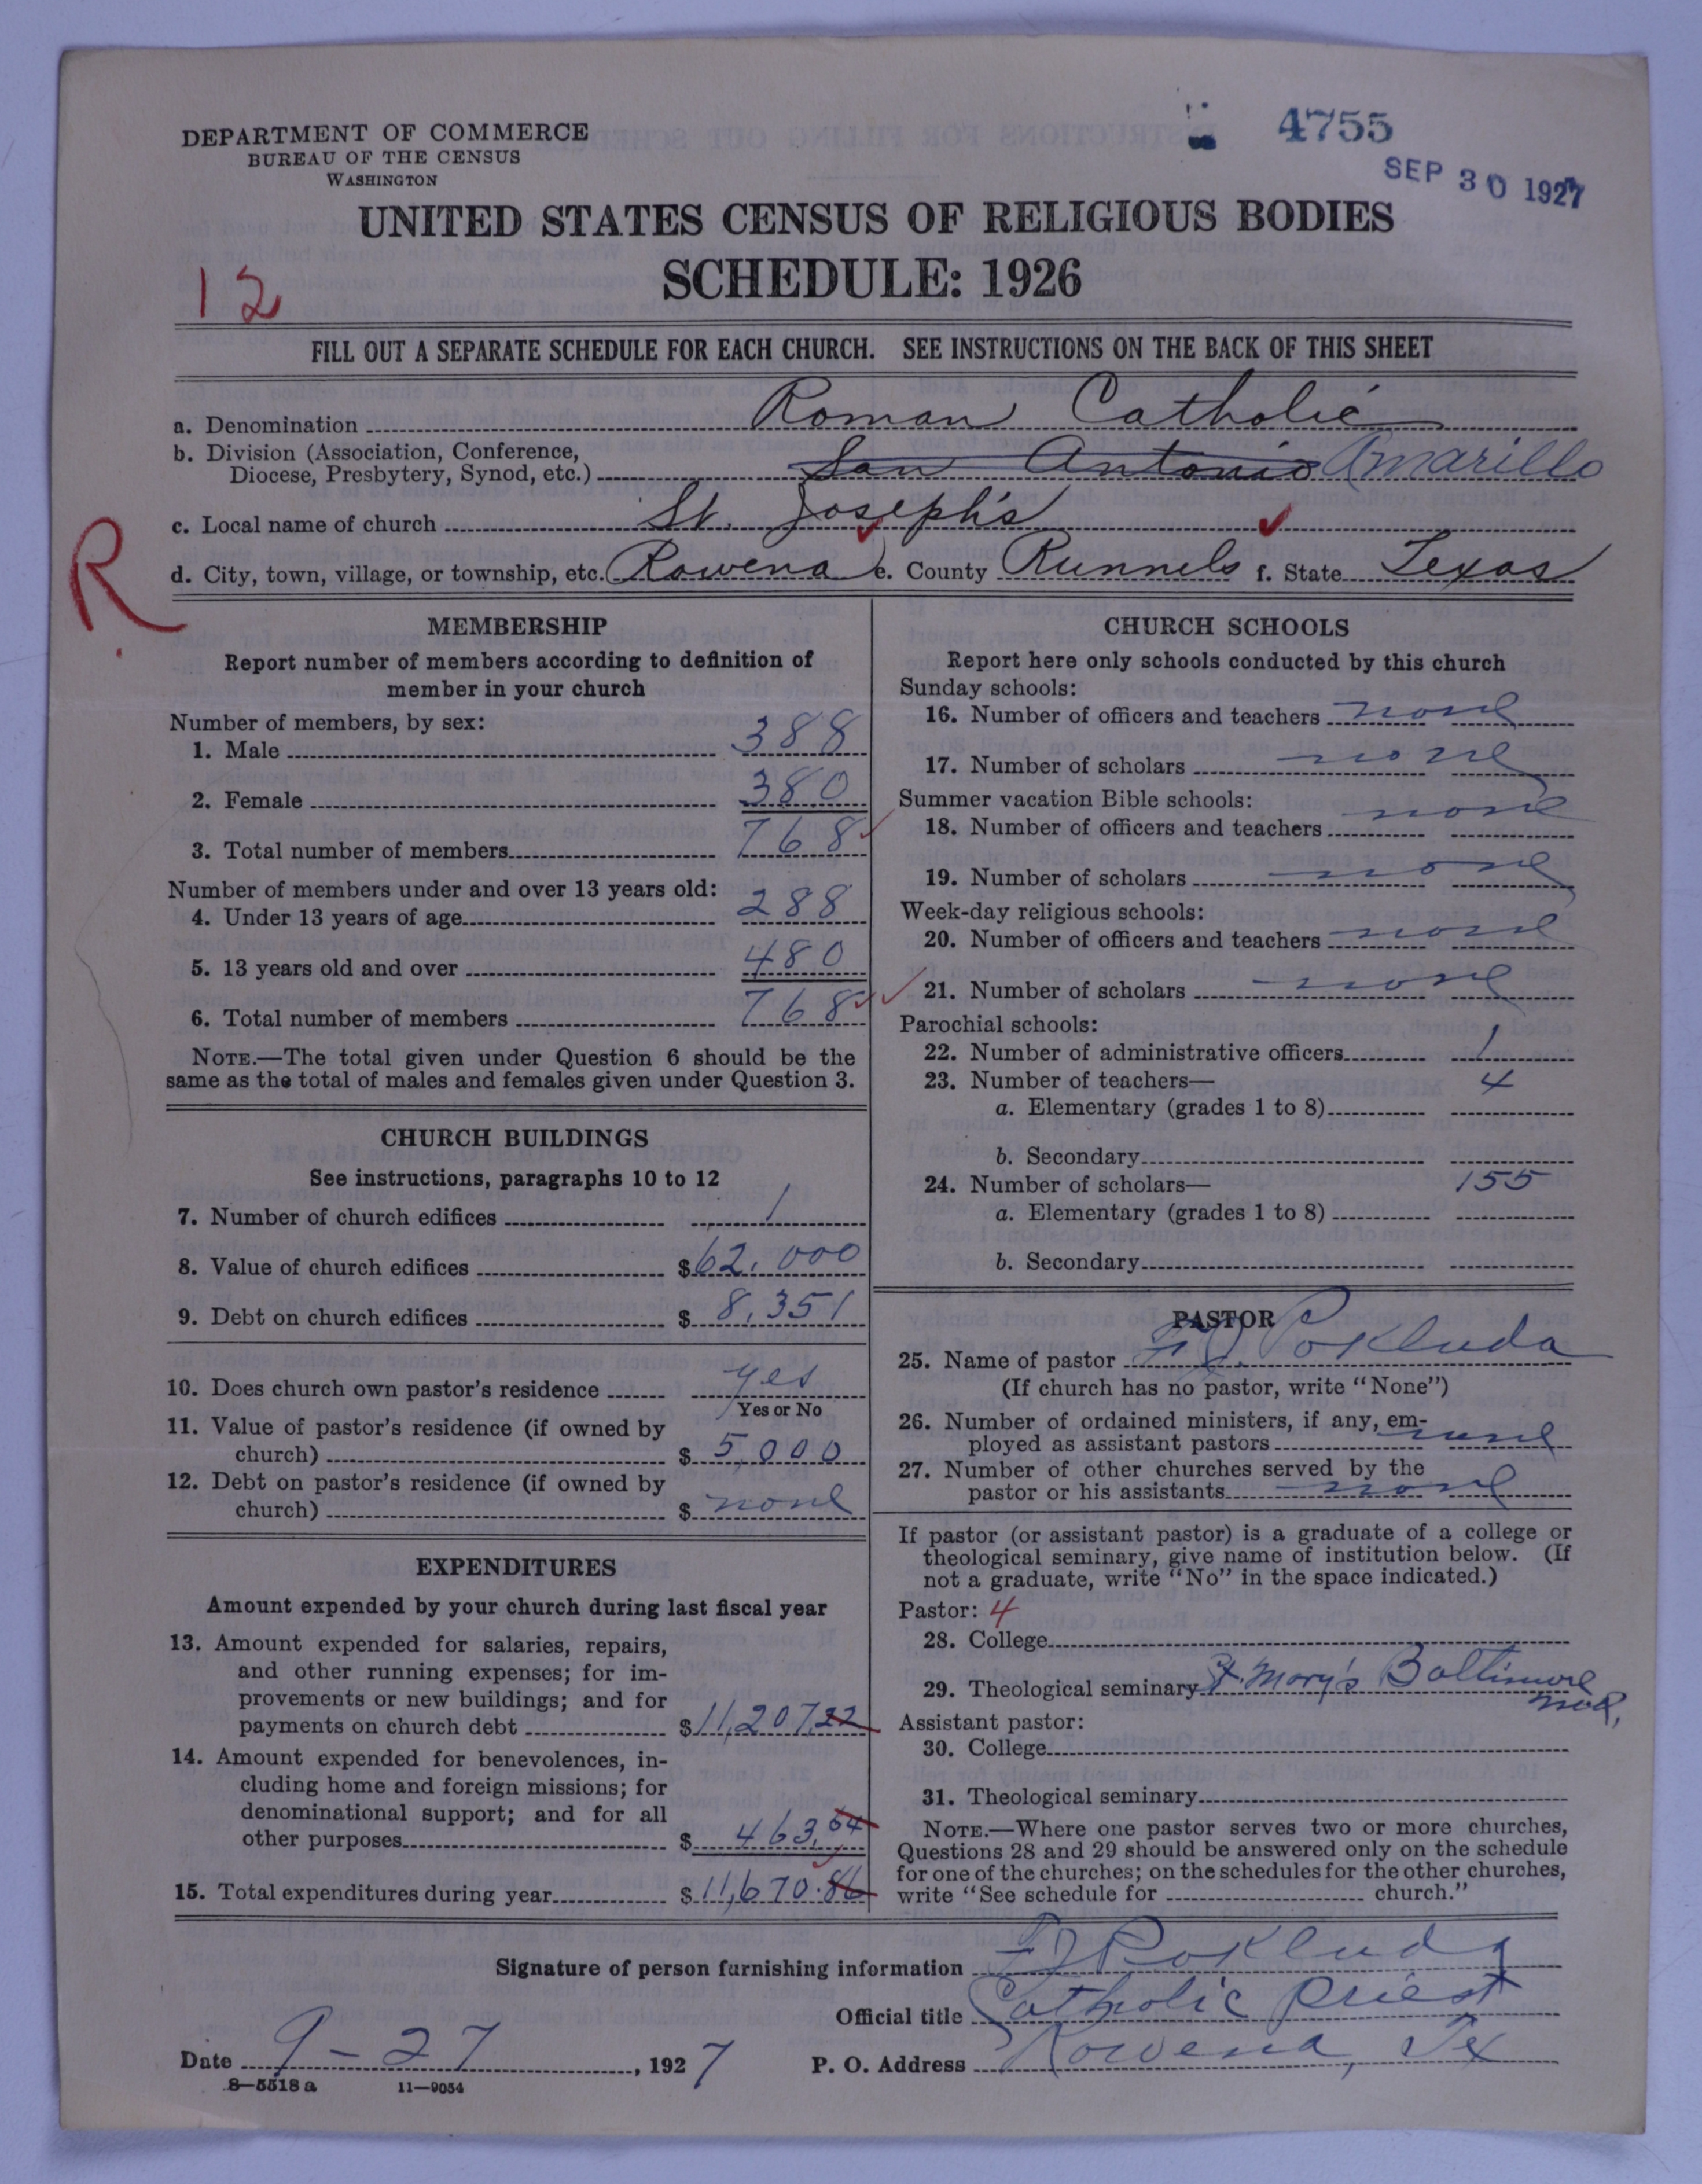 4755
SEP 30 1927
DEPARTMENT OF COMMERCE
BUREAU OF THE CENSUS
WASHINGTON
UNITED STATES CENSUS OF RELIGIOUS BODIES
SCHEDULE: 1926
12
FILL OUT A SEPARATE SCHEDULE FOR EACH CHURCH. SEE INSTRUCTIONS ON THE BACK OF THIS SHEET
a. Denomination Roman Catholic
b. Division (Association, Conference,
Diocese, Presbytery, Synod, etc.) San Antonio Amarillo
c. Local name of church St. Joseph's
R
d. City, town, village, or township, etc. Rowena e. County Runnels f. State Texas
MEMBERSHIP
Report number of members according to definition of
member in your church
Number of members, by sex:
1. Male 388
2. Female 380
3. Total number of members 768
Number of members under and over 13 years old:
4. Under 13 years of age 288
5. 13 years old and over 480
6. Total number of members 768
NOTE.—The total given under Question 6 should be the
same as the total of males and females given under Question 3.
CHURCH BUILDINGS
See instructions, paragraphs 10 to 12
7. Number of church edifices 1
8. Value of church edifices $62,000
9. Debt on church edifices $8,351
10. Does church own pastor's residence yes
Yes or No
11. Value of pastor's residence (if owned by
church) $5,000
12. Debt on pastor's residence (if owned by
church) $none
EXPENDITURES
Amount expended by your church during last fiscal year
13. Amount expended for salaries, repairs,
and other running expenses; for im-
provements or new buildings; and for
payments on church debt $11,207.22
14. Amount expended for benevolences, in-
cluding home and foreign missions; for
denominational support; and for all
other purposes $463.64
15. Total expenditures during year $11,670.86
CHURCH SCHOOLS
Report here only schools conducted by this church
Sunday schools:
16. Number of officers and teachers none
17. Number of scholars none
Summer vacation Bible schools:
18. Number of officers and teachers none
19. Number of scholars none
Week-day religious schools:
20. Number of officers and teachers none
21. Number of scholars none
Parochial schools:
22. Number of administrative officers 1
23. Number of teachers— 4
a. Elementary (grades 1 to 8)
b. Secondary
24. Number of scholars— 155
a. Elementary (grades 1 to 8)
b. Secondary
PASTOR
25. Name of pastor F J. Pokluda
(If church has no pastor, write "None")
26. Number of ordained ministers, if any, em-
ployed as assistant pastors none
27. Number of other churches served by the
pastor or his assistants none
If pastor (or assistant pastor) is a graduate of a college or
theological seminary, give name of institution below. (If
not a graduate, write "No" in the space indicated.)
Pastor: 4
28. College
29. Theological seminary St. Mary's Baltimore
Md.
Assistant pastor:
30. College
31. Theological seminary
NOTE.—Where one pastor serves two or more churches,
Questions 28 and 29 should be answered only on the schedule
for one of the churches; on the schedules for the other churches,
write "See schedule for church."
Signature of person furnishing information F J Pokluda
Official title Catholic Priest
Date 9-27, 1927 P. O. Address Rowena, Tex
8—5518 a 11—9054